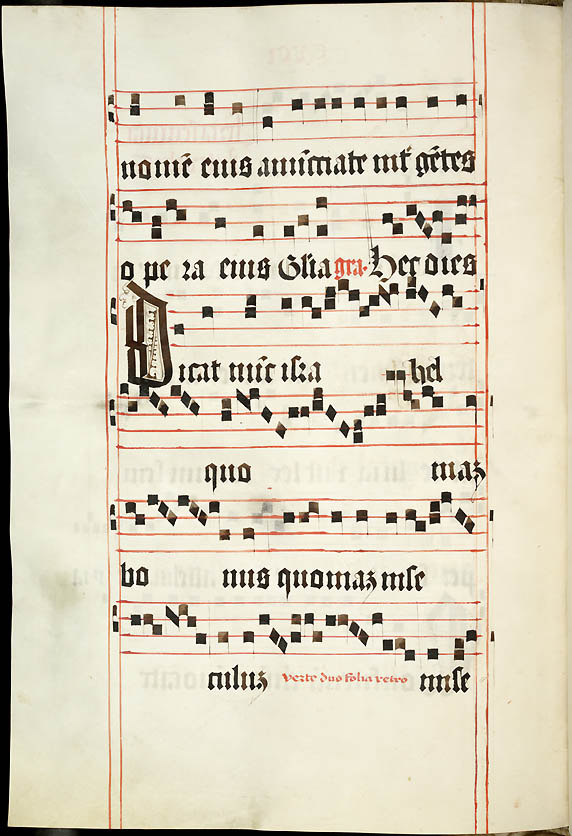 nomē eius anūciate int̄ gētes
o pe ra eius Glia gra. Hec dies
Dicat nūc isra hel
quo niaꝫ
bo nus quoniaꝫ in se
culuꝫ verte duo folia retro in se